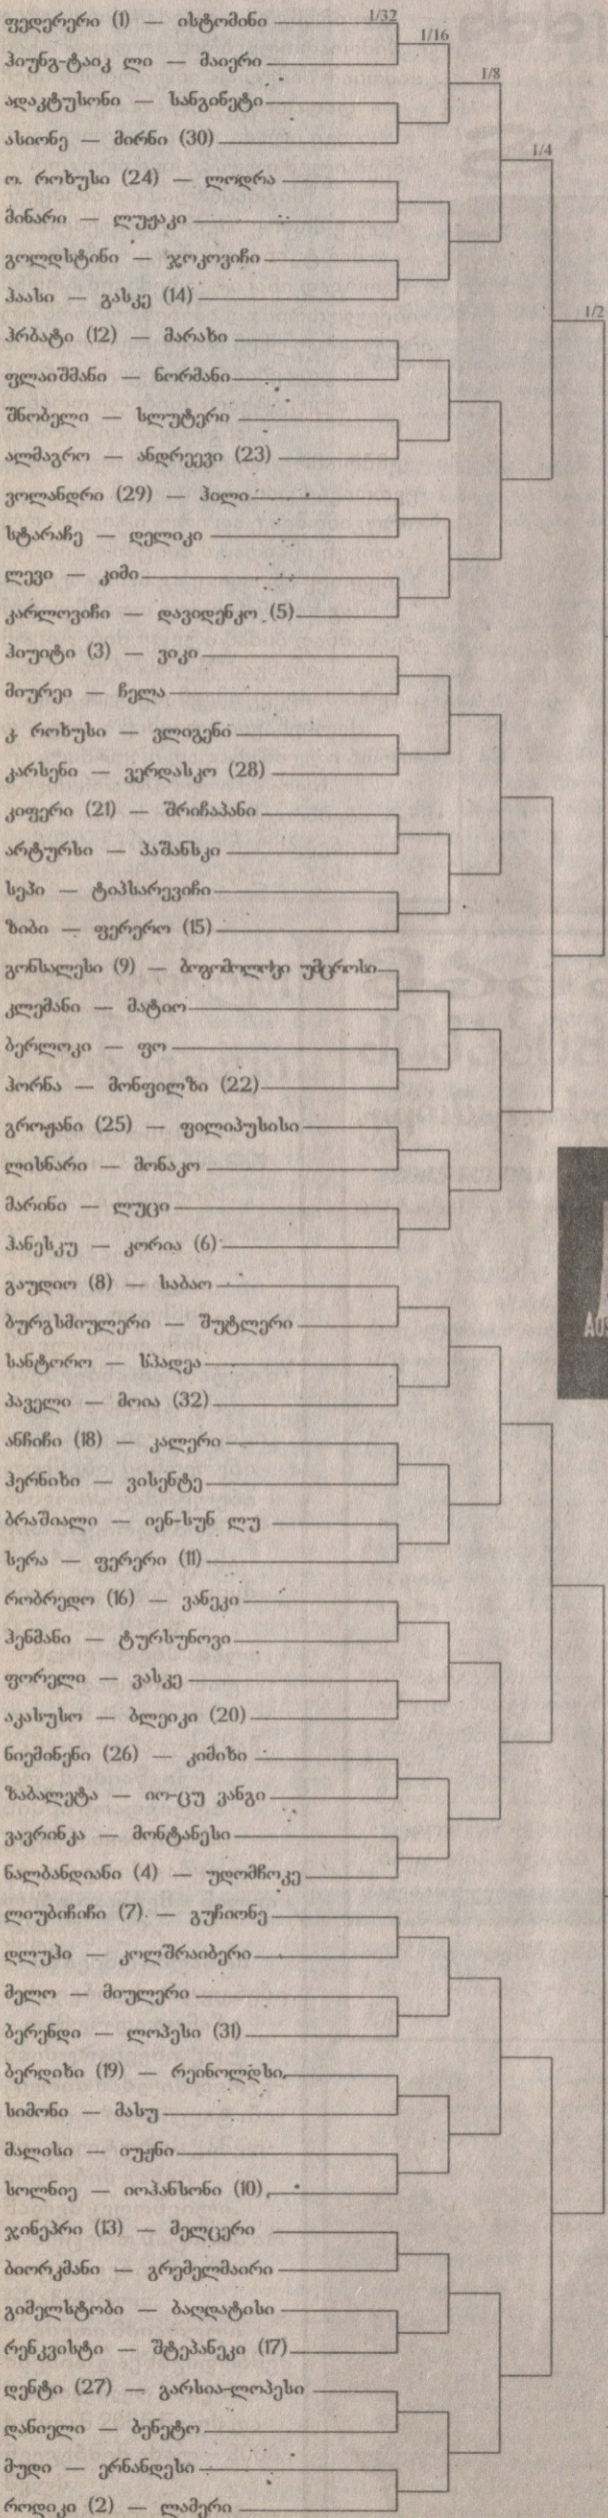 ფედერერი (1) — ისტომინი
1/32
1/16
ჰიუნგ-ტაიკ ლი — მაიერი
1/8
ადაკტუსონი — სანგინეტი
ასიონე — მირნი (30)
1/4
ო. როხუსი (24) — ლოდრა
მინარი — ლუჟაკი
გოლდსტინი — ჯოკოვიჩი
ჰაასი — გასკე (14)
1/2
ჰრბატი (12) — მარახი
ფლაიშმანი — ნორმანი
შნობელი — სლუტერი
ალმაგრო — ანდრეევი (23)
ვოლანდრი (29) — ჰილი
სტარაჩე — დელიკი
ლევი — კიმი
კარლოვიჩი — დავიდენკო (5)
ჰიუიტი (3) — ვიკი
მიურეი — ჩელა
კ. როხუსი — ვლიგენი
კარსენი — ვერდასკო (28)
კიფერი (21) — შრიჩაპანი
არტურსი — პაშანსკი
სეპი — ტიპსარევიჩი
ზიბი — ფერერო (15)
გონსალესი (9) — ბოგომოლოვი უმცროსი
კლემანი — მატიო
ბერლოკი — ფო
ჰორნა — მონფილზი (22)
გროჟანი (25) — ფილიპუსისი
ლისნარი — მონაკო
მარინი — ლუცი
ჰანესკუ — კორია (6)
გაუდიო (8) — საბაო
ბურგსმიულერი — შუტლერი
სანტორო — სპადეა
პაველი — მოია (32)
ანჩიჩი (18) — კალერი
ჰერნიხი — ვისენტე
ბრაშიალი — იენ-სუნ ლუ
სერა — ფერერი (11)
რობრედო (16) — ვანეკი
ჰენმანი — ტურსუნოვი
ფორელი — ვასკე
აკასუსო — ბლეიკი (20)
ნიემინენი (26) — კიმიხი
ზაბალეტა — იო-ცუ ვანგი
ვავრინკა — მონტანესი
ნალბანდიანი (4) — უდომჩოკე
ლიუბიჩიჩი (7) — გუჩიონე
დლუჰი — კოლშრაიბერი
მელო — მიულერი
ბერენდი — ლოპესი (31)
ბერდიხი (19) — რეინოლდსი
სიმონი — მასუ
მალისი — იუჟნი
სოლნიე — იოჰანსონი (10)
ჯინეპრი (13) — მელცერი
ბიორკმანი — გრემელმაირი
გიმელსტობი — ბაღდატისი
რენკვისტი — შტეპანეკი (17)
დენტი (27) — გარსია-ლოპესი
დანიელი — ბენეტო
მუდი — ერნანდესი
როდიკი (2) — ლამერი